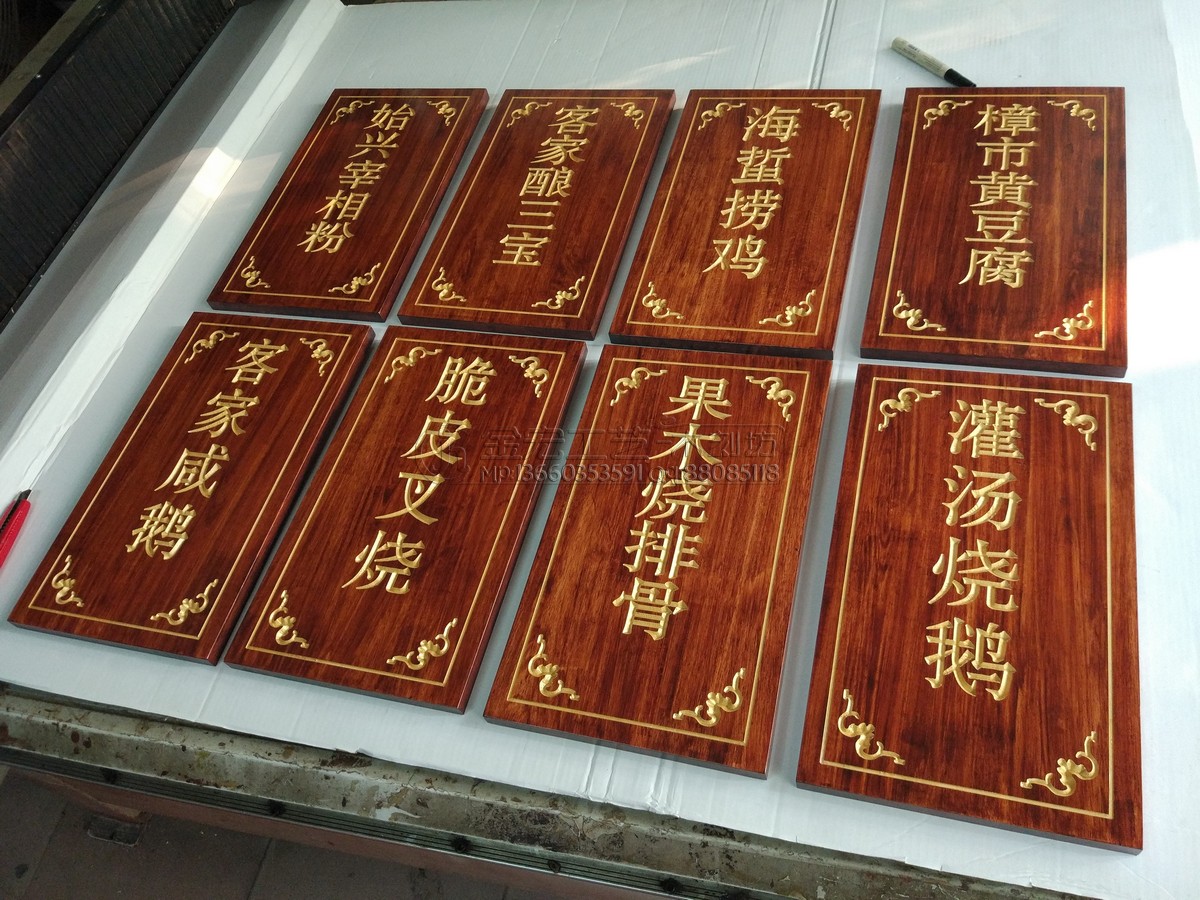 始兴宰相粉
客家酿三宝
海蜇捞鸡
樟市黄豆腐
客家咸鹅
脆皮叉烧
果木烧排骨
灌汤烧鹅
Mp:13660353591
88085118